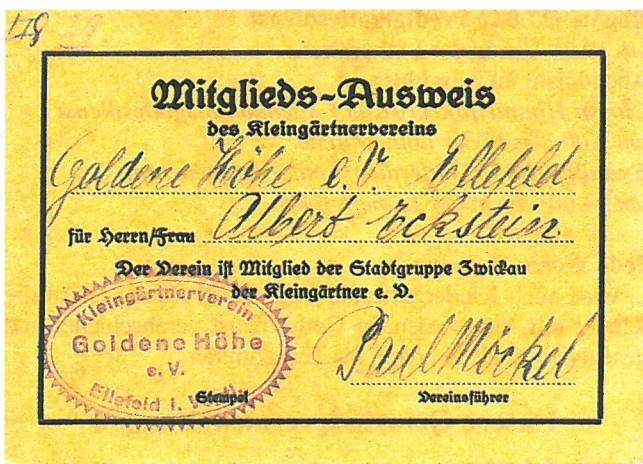 178
Mitglieds-Ausweis
des Kleingärtnervereins
Goldene Höhe e.V. Ellefeld
für Herrn/Frau Albert Eckstein
Der Verein ist Mitglied der Stadtgruppe Zwickau
der Kleingärtner e. V.
Kleingärtnerverein
Goldene Höhe
e. V.
Ellefeld i. Vogtl.
Paul Möckel
Stempel Vereinsführer